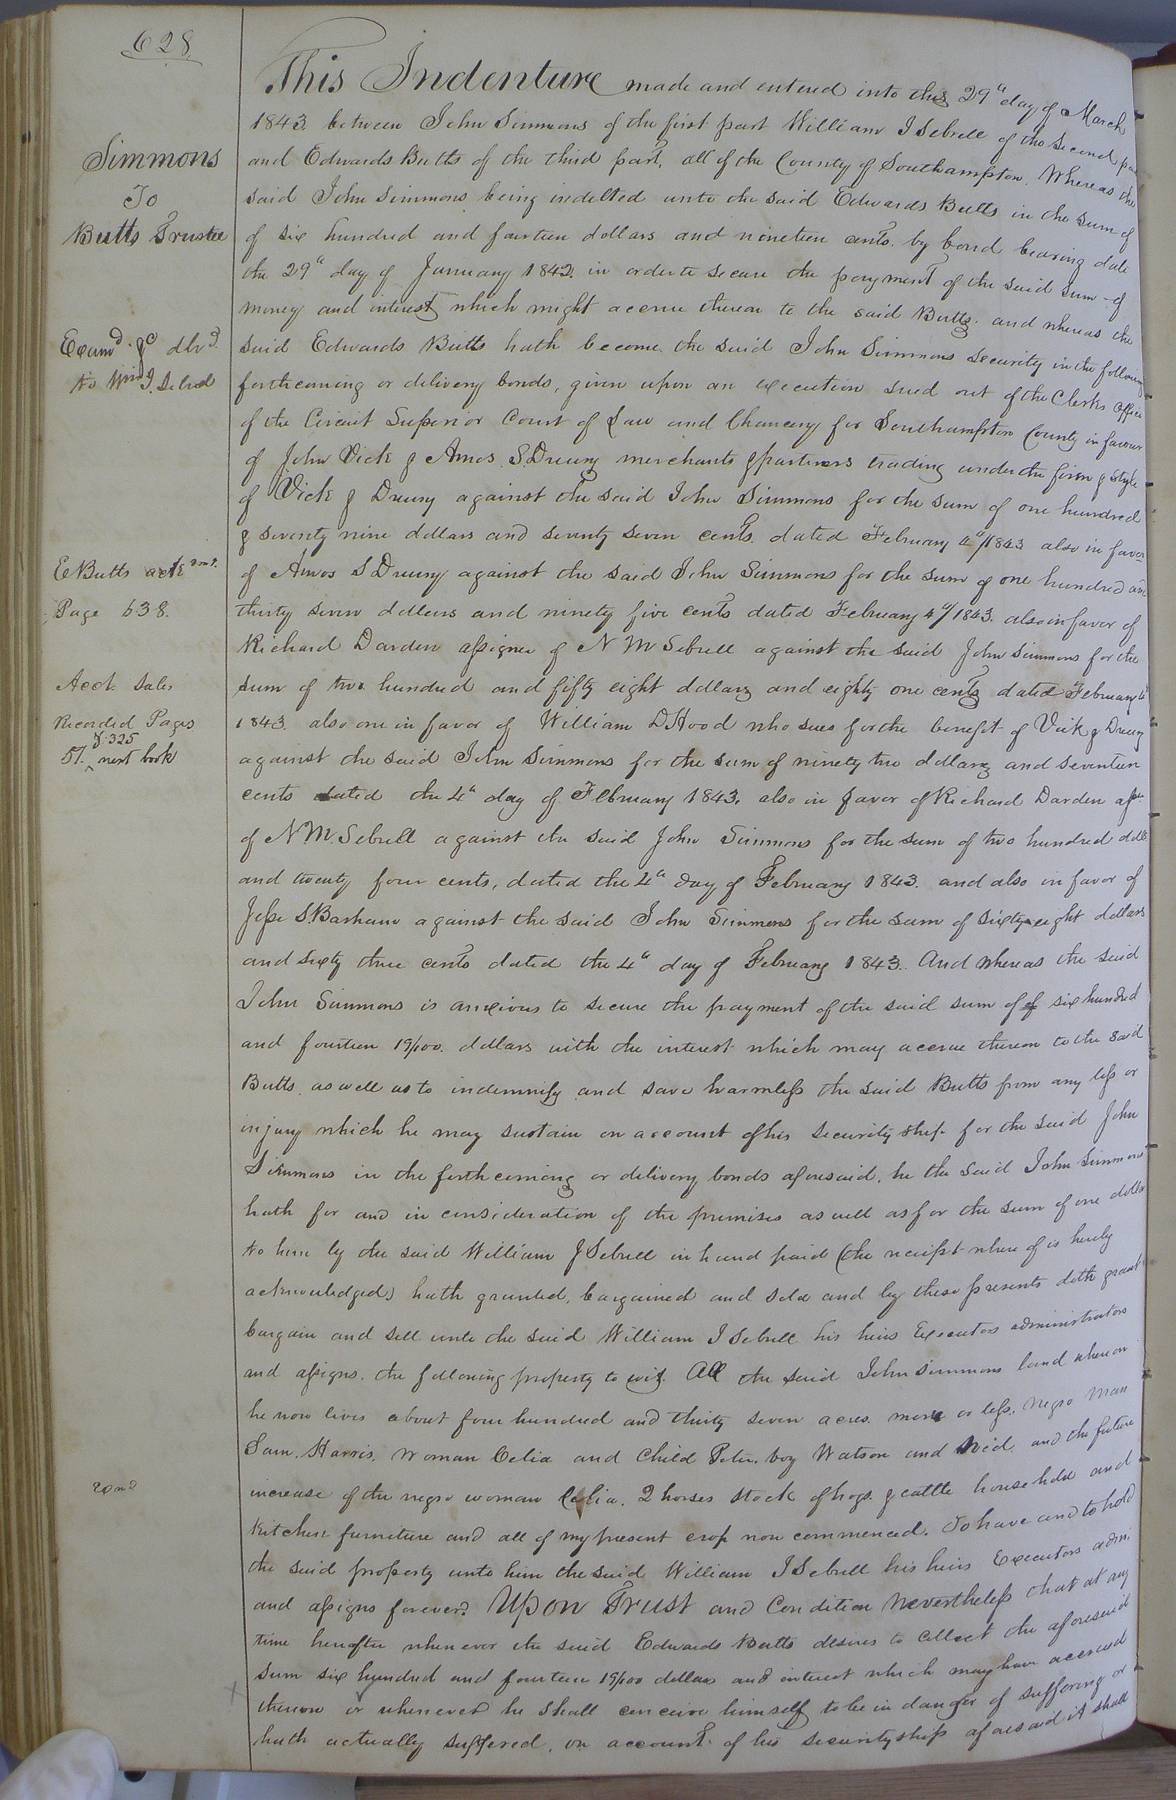 628
Simmons
To
Butts Trustee
Examd. & dlvd.
to Wm J. Sebrell
E Butts acct
Page 638.
Acct Sales
Recorded Pages
& 325
57. ^ next book
This Indenture made and entered into this 29th day of March
1843. between John Simmons of the first part William J Sebrell of the second part
and Edwards Butts of the third part, all of the County of Southampton. Whereas the
said John Simmons being indebted unto the said Edwards Butts in the sum of
of six hundred and fourteen dollars and nineteen cents. by bond bearing date
the 29th day of January 1842. in order to secure the payment of the said sum of
money and interest which might accrue thereon to the said Butts. and whereas the
said Edwards Butts hath become the said John Simmons security in the following
forthcoming or delivery bonds, given upon an execution sued out of the Clerks office
of the Circuit Superior Court of Law and Chancery for Southampton County in favour
of John Vick & Amos S Drewry merchants & partners trading under the firm & style
of Vick & Drewry against the said John Simmons for the sum of one hundred
& seventy nine dollars and seventy seven cents. dated February 4th/1843 also in favor
of Amos S Drewry against the said John Simmons for the sum of one hundred and
thirty seven dollars and ninety five cents dated February 4th/1843. also in favor of
Richard Darden assignee of N M Sebrell against the said John Simmons for the
sum of two hundred and fifty eight dollars and eighty one cents dated February 4th
1843. also one in favor of William D Hood who sues for the benefit of Vick & Drewry
against the said John Simmons for the sum of ninety two dollars and seventeen
cents dated the 4th day of February 1843. also in favor of Richard Darden assee
of N M. Sebrell against the said John Simmons for the sum of two hundred dolls
and twenty four cents, dated the 4th day of February 1843. and also in favor of
Jesse S Barham against the said John Simmons for the sum of sixty eight dollars
and sixty three cents dated the 4th day of February 1843. And whereas the said
John Simmons is anxious to secure the payment of the said sum of of six hundred
and fourteen 19/100. dollars with the interest which may accrue thereon to the said
Butts. as well as to indemnify and save harmless the said Butts from any loss or
injury which he may sustain on account of his security ship for the said John
Simmons in the forthcoming or delivery bonds aforesaid. he the said John Simmons
hath for and in consideration of the premises as well as for the sum of one dollar
to him by the said William J Sebrell in hand paid (the receipt where of is hereby
acknowledged) hath granted, bargained and sold and by these presents doth grant
bargain and sell unto the said William J Sebrell his heirs Executors administrators
and assigns. the following property to wit. All the said John Simmons land whereon
he now lives about four hundred and thirty seven acres. more or less. negro man
Sam. Harris. woman Celia and Child Peter. boy Watson and Ned. and the future
increase of the negro woman Celia. 2 horses stock of hogs. & cattle household and
Kitchen furniture and all of my present crop now commenced. To have and to hold
the said property unto him the said William J Sebrell his heirs Executors admrs.
and assigns forever. Upon Trust and Condition Nevertheless that at any
time hereafter whenever the said Edwards Butts desires to Collect the aforesaid
sum six hundred and fourteen 19/100 dollars and interest which may have accrued
thereon or whenever he shall conceive himself to be in danger of suffering or
hath actually suffered. on account of his securityship aforesaid it shall